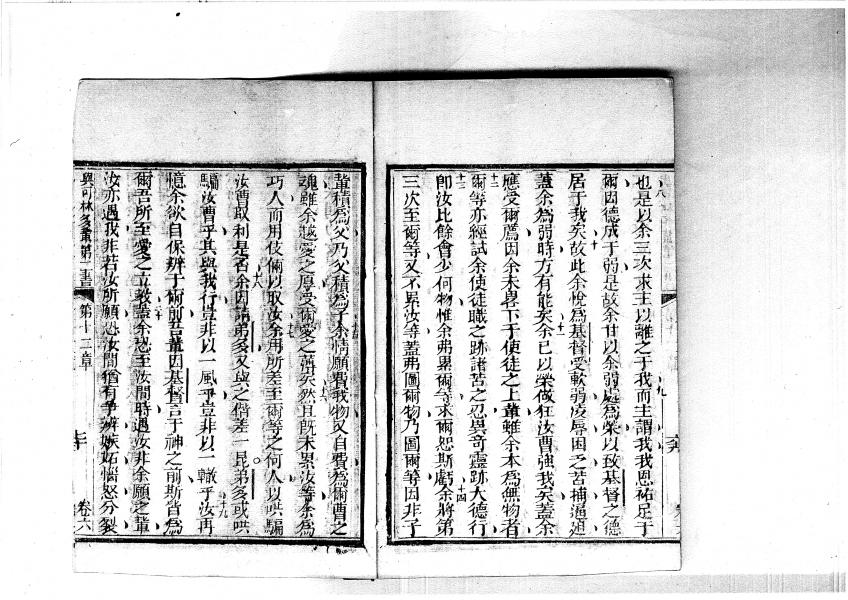 也是以余三次求主以離之于我而主謂我我恩祐足于
爾因德成于弱是故余甘以余弱處為榮以致基督之德
居于我矣故此余悅為基督受軟弱凌辱困乏苦捕逼迎
蓋余為弱時方有能矣余已以榮做狂汝曹強我矣蓋余
應受爾薦因余未畧下于使徒之上輩雖余本為無物者
爾等亦經試余使徒職之跡諸苦之忍異奇靈跡大德行
即汝比餘會少何物惟余弗累爾等求爾恕斯虧余將第
三次至爾等又不累汝等蓋弗圖爾物乃圖爾等因非子
輩積為父乃父積為子余情願費我物又自費為爾曹之
魂雖余越愛之厚受爾愛之薄矣然且既未累汝等余為
巧人而用伎倆以取汝余用所差至爾等之何人以哄騙
汝曹取利是否余因請弟多又與之偕差一昆弟多或哄
騙汝曹乎其與我行豈非以一風乎豈非以一轍乎汝再
憶余欲自保辨于爾前吾輩因基督言于神之前斯皆為
爾吾所至愛之立教蓋余恐至汝間時遇汝非余願之輩
汝亦遇我非若汝所願恐汝間猶有爭辨嫉妬惱怒分裂
與可林多輩第二書 第十三章 卷六